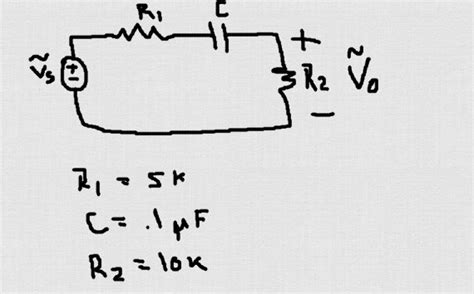 R₁ C
Ṽs + − + R₂ Ṽo −
R₁ = 5K
C = .1 μF
R₂ = 10K